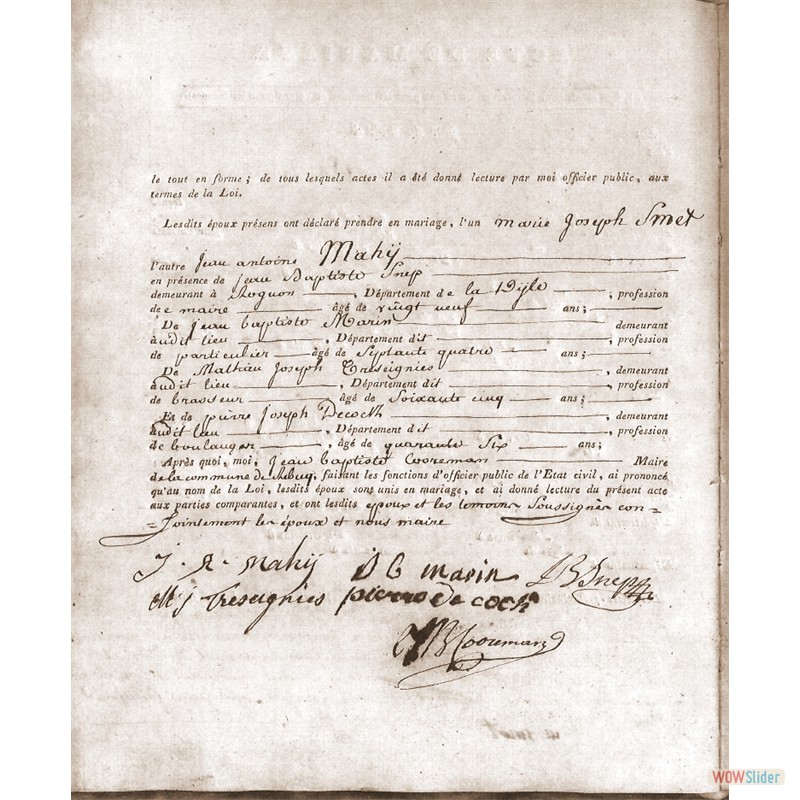 le tout en forme ; de tous lesquels actes il a été donné lecture par moi officier public, aux
termes de la Loi.
Lesdits époux présens ont déclaré prendre en mariage, l'un marie Joseph Smet
l'autre Jean antoine Mahij
en présence de jean Baptiste Snep
demeurant à Rognon , Département de la Dijle ; profession
de maire âgé de vingt neuf ans ;
De jean baptiste Marin demeurant
audit lieu , Département dit ; profession
de particulier âgé de Septante quatre ans ;
De Mathieu Joseph Treseignies , demeurant
audit lieu , Département dit profession
de brasseur âgé de Soixante cinq ans ;
Et de pierre Joseph Decoch , demeurant
audit lieu , Département dit , profession
de boulanger , âgé de quarante Six ans ;
Après quoi, moi, Jean baptiste Cooreman Maire
de la commune de Rebeq, faisant les fonctions d'officier public de l'Etat civil, ai prononcé
qu'au nom de la Loi, lesdits époux sont unis en mariage, et ai donné lecture du présent acte
aux parties comparantes, et ont lesdits époux et les temoins Soussignés con-
=jointement les époux et nous maire
J. A. Mahij J B marin JB Snep
M j Treseignies pierre De coch
JB Cooreman
WOWSlider